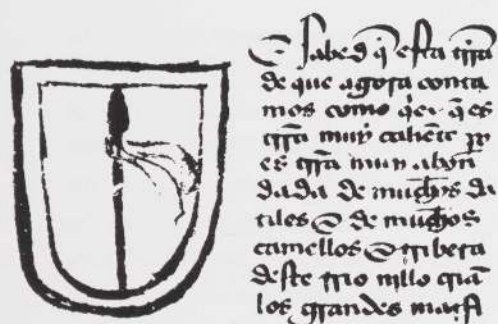 E sabed q̃ esta trr̃a
de que agora conta
mos como q̃er q̃ es
trr̃a muy caliẽte p̱o
es trr̃a muy abõn
dada de muchos da
tiles E de muchos
camellos E rribera
deste rrio nillo criã
los grandes marfi